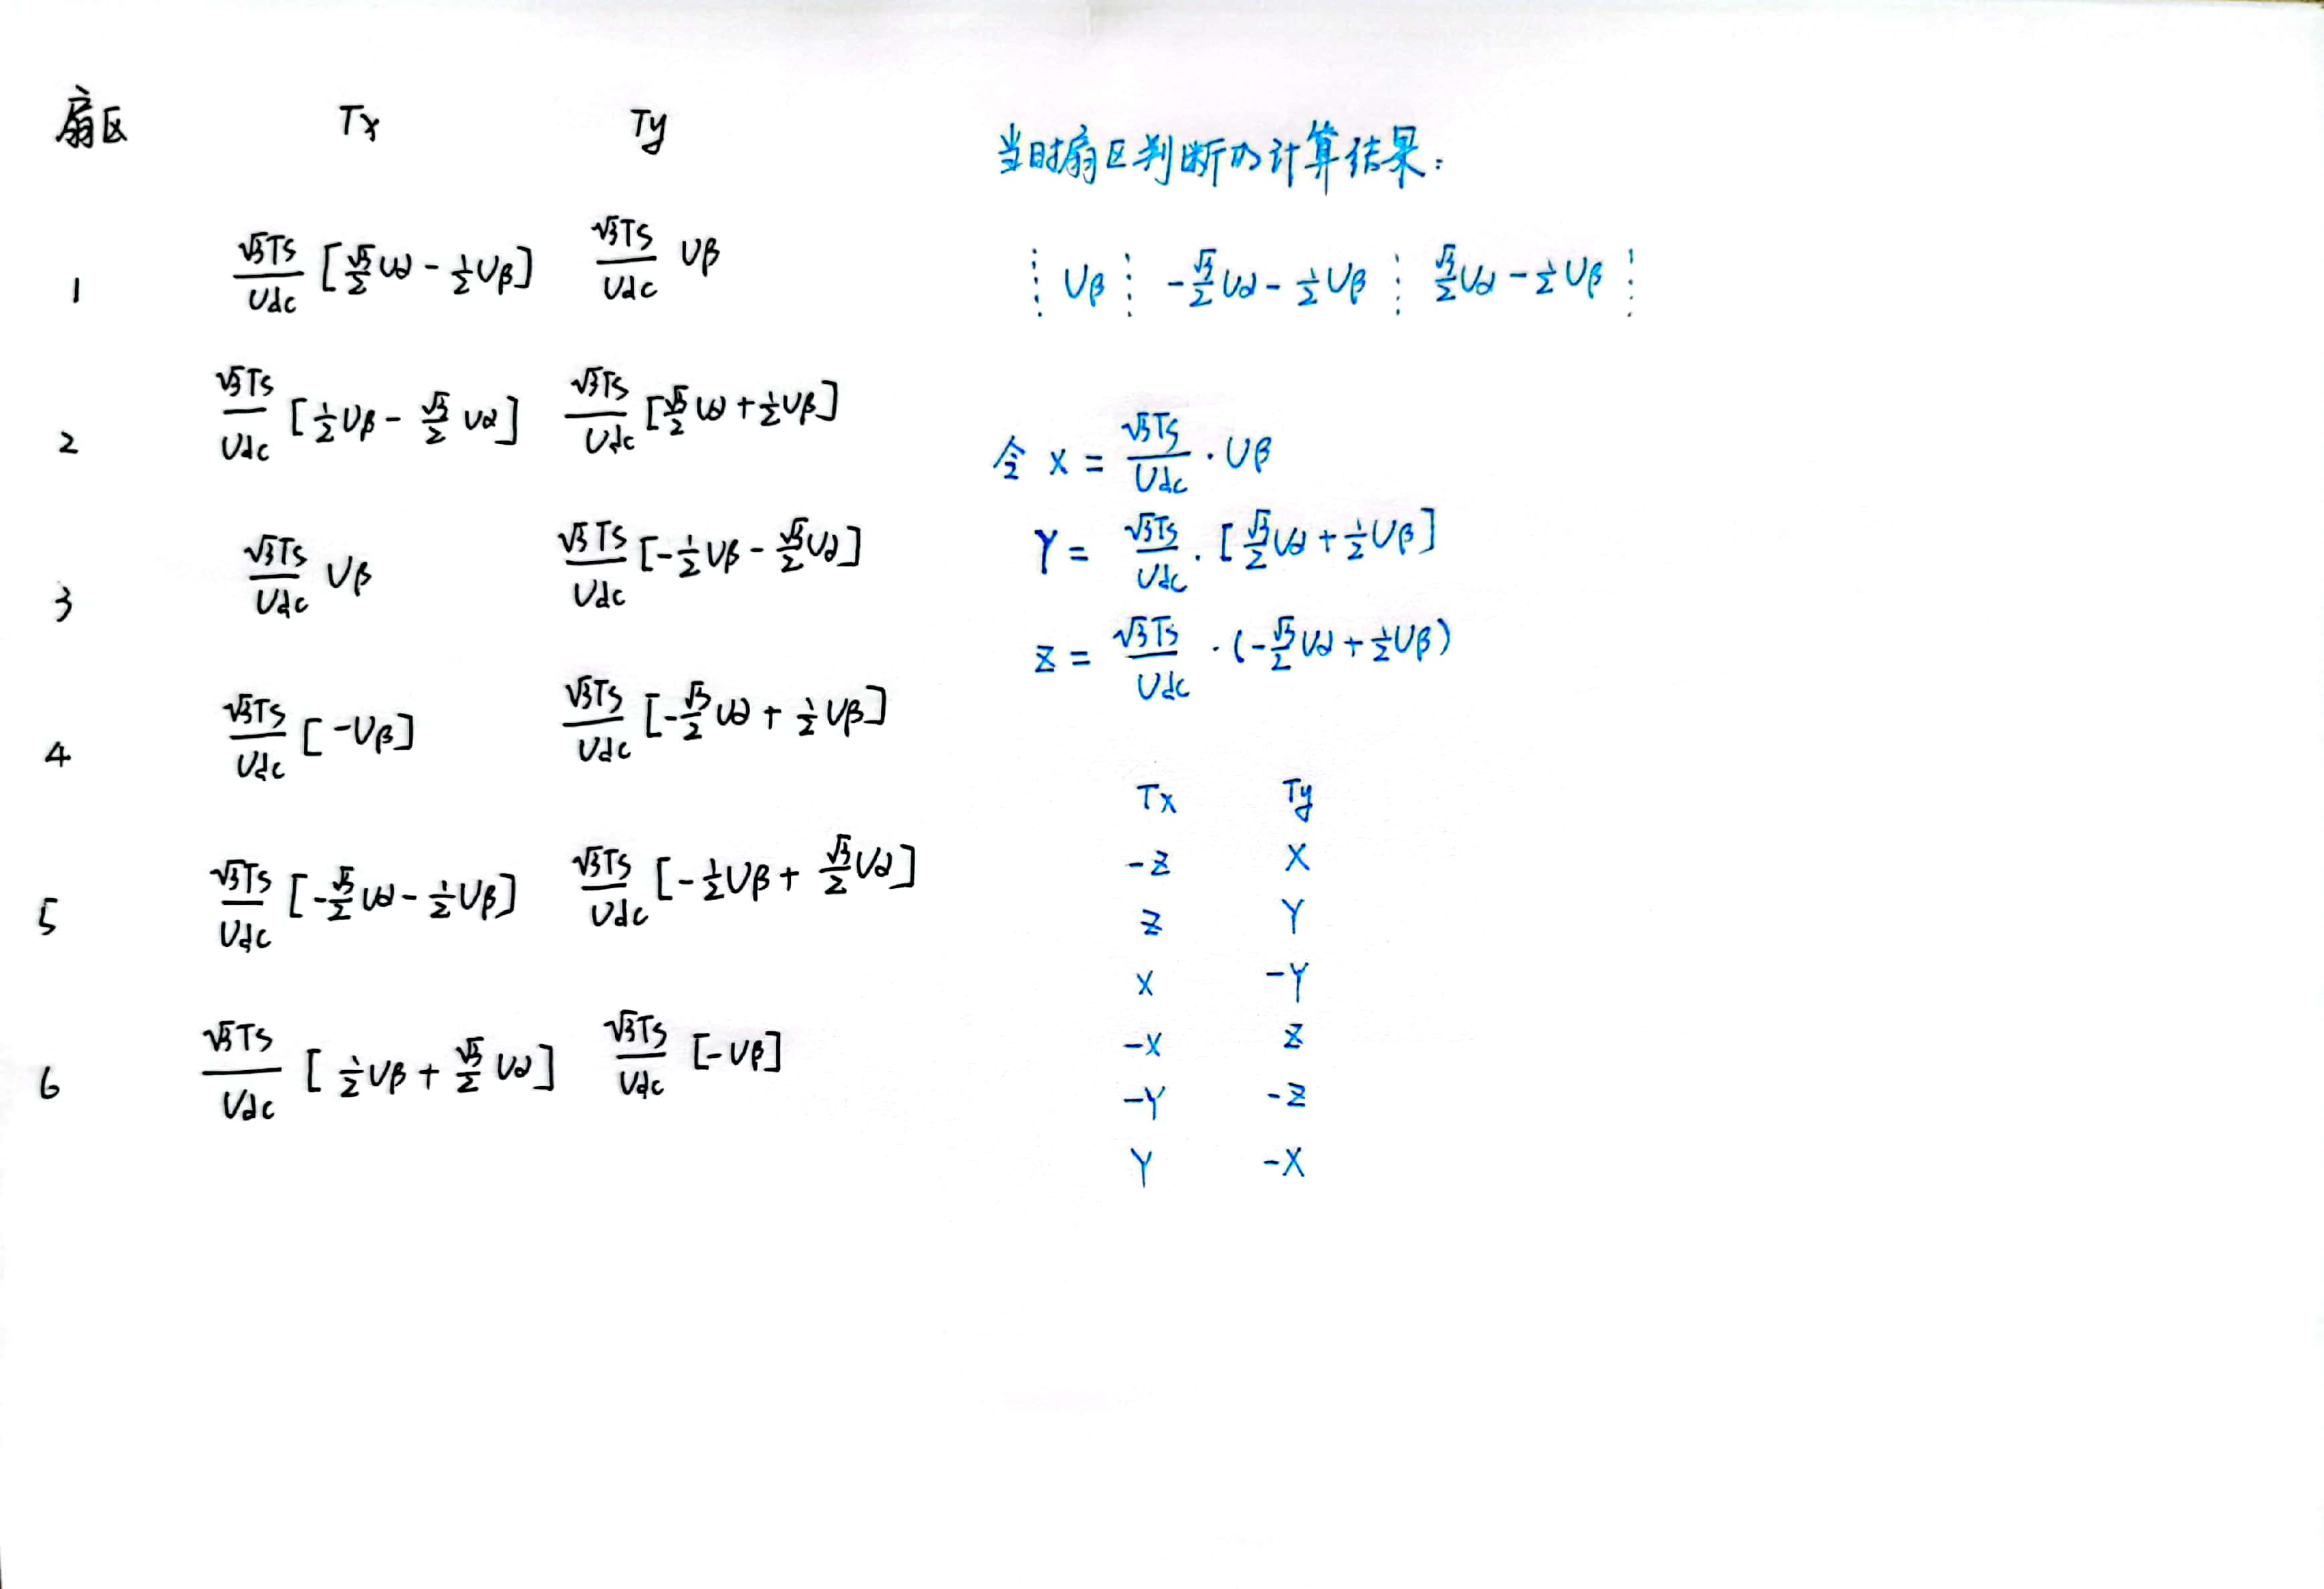 扇区 Tx Ty
1 √3Ts/Udc [√3/2 Uα - 1/2 Uβ] √3Ts/Udc Uβ
2 √3Ts/Udc [1/2 Uβ - √3/2 Uα] √3Ts/Udc [√3/2 Uα + 1/2 Uβ]
3 √3Ts/Udc Uβ √3Ts/Udc [-1/2 Uβ - √3/2 Uα]
4 √3Ts/Udc [-Uβ] √3Ts/Udc [-√3/2 Uα + 1/2 Uβ]
5 √3Ts/Udc [-√3/2 Uα - 1/2 Uβ] √3Ts/Udc [-1/2 Uβ + √3/2 Uα]
6 √3Ts/Udc [1/2 Uβ + √3/2 Uα] √3Ts/Udc [-Uβ]
当时扇区判断的计算结果:
Uβ -√3/2 Uα - 1/2 Uβ √3/2 Uα - 1/2 Uβ
令 X = √3Ts/Udc · Uβ
Y = √3Ts/Udc · [√3/2 Uα + 1/2 Uβ]
Z = √3Ts/Udc · (-√3/2 Uα + 1/2 Uβ)
Tx Ty
-Z X
Z Y
X -Y
-X Z
-Y -Z
Y -X